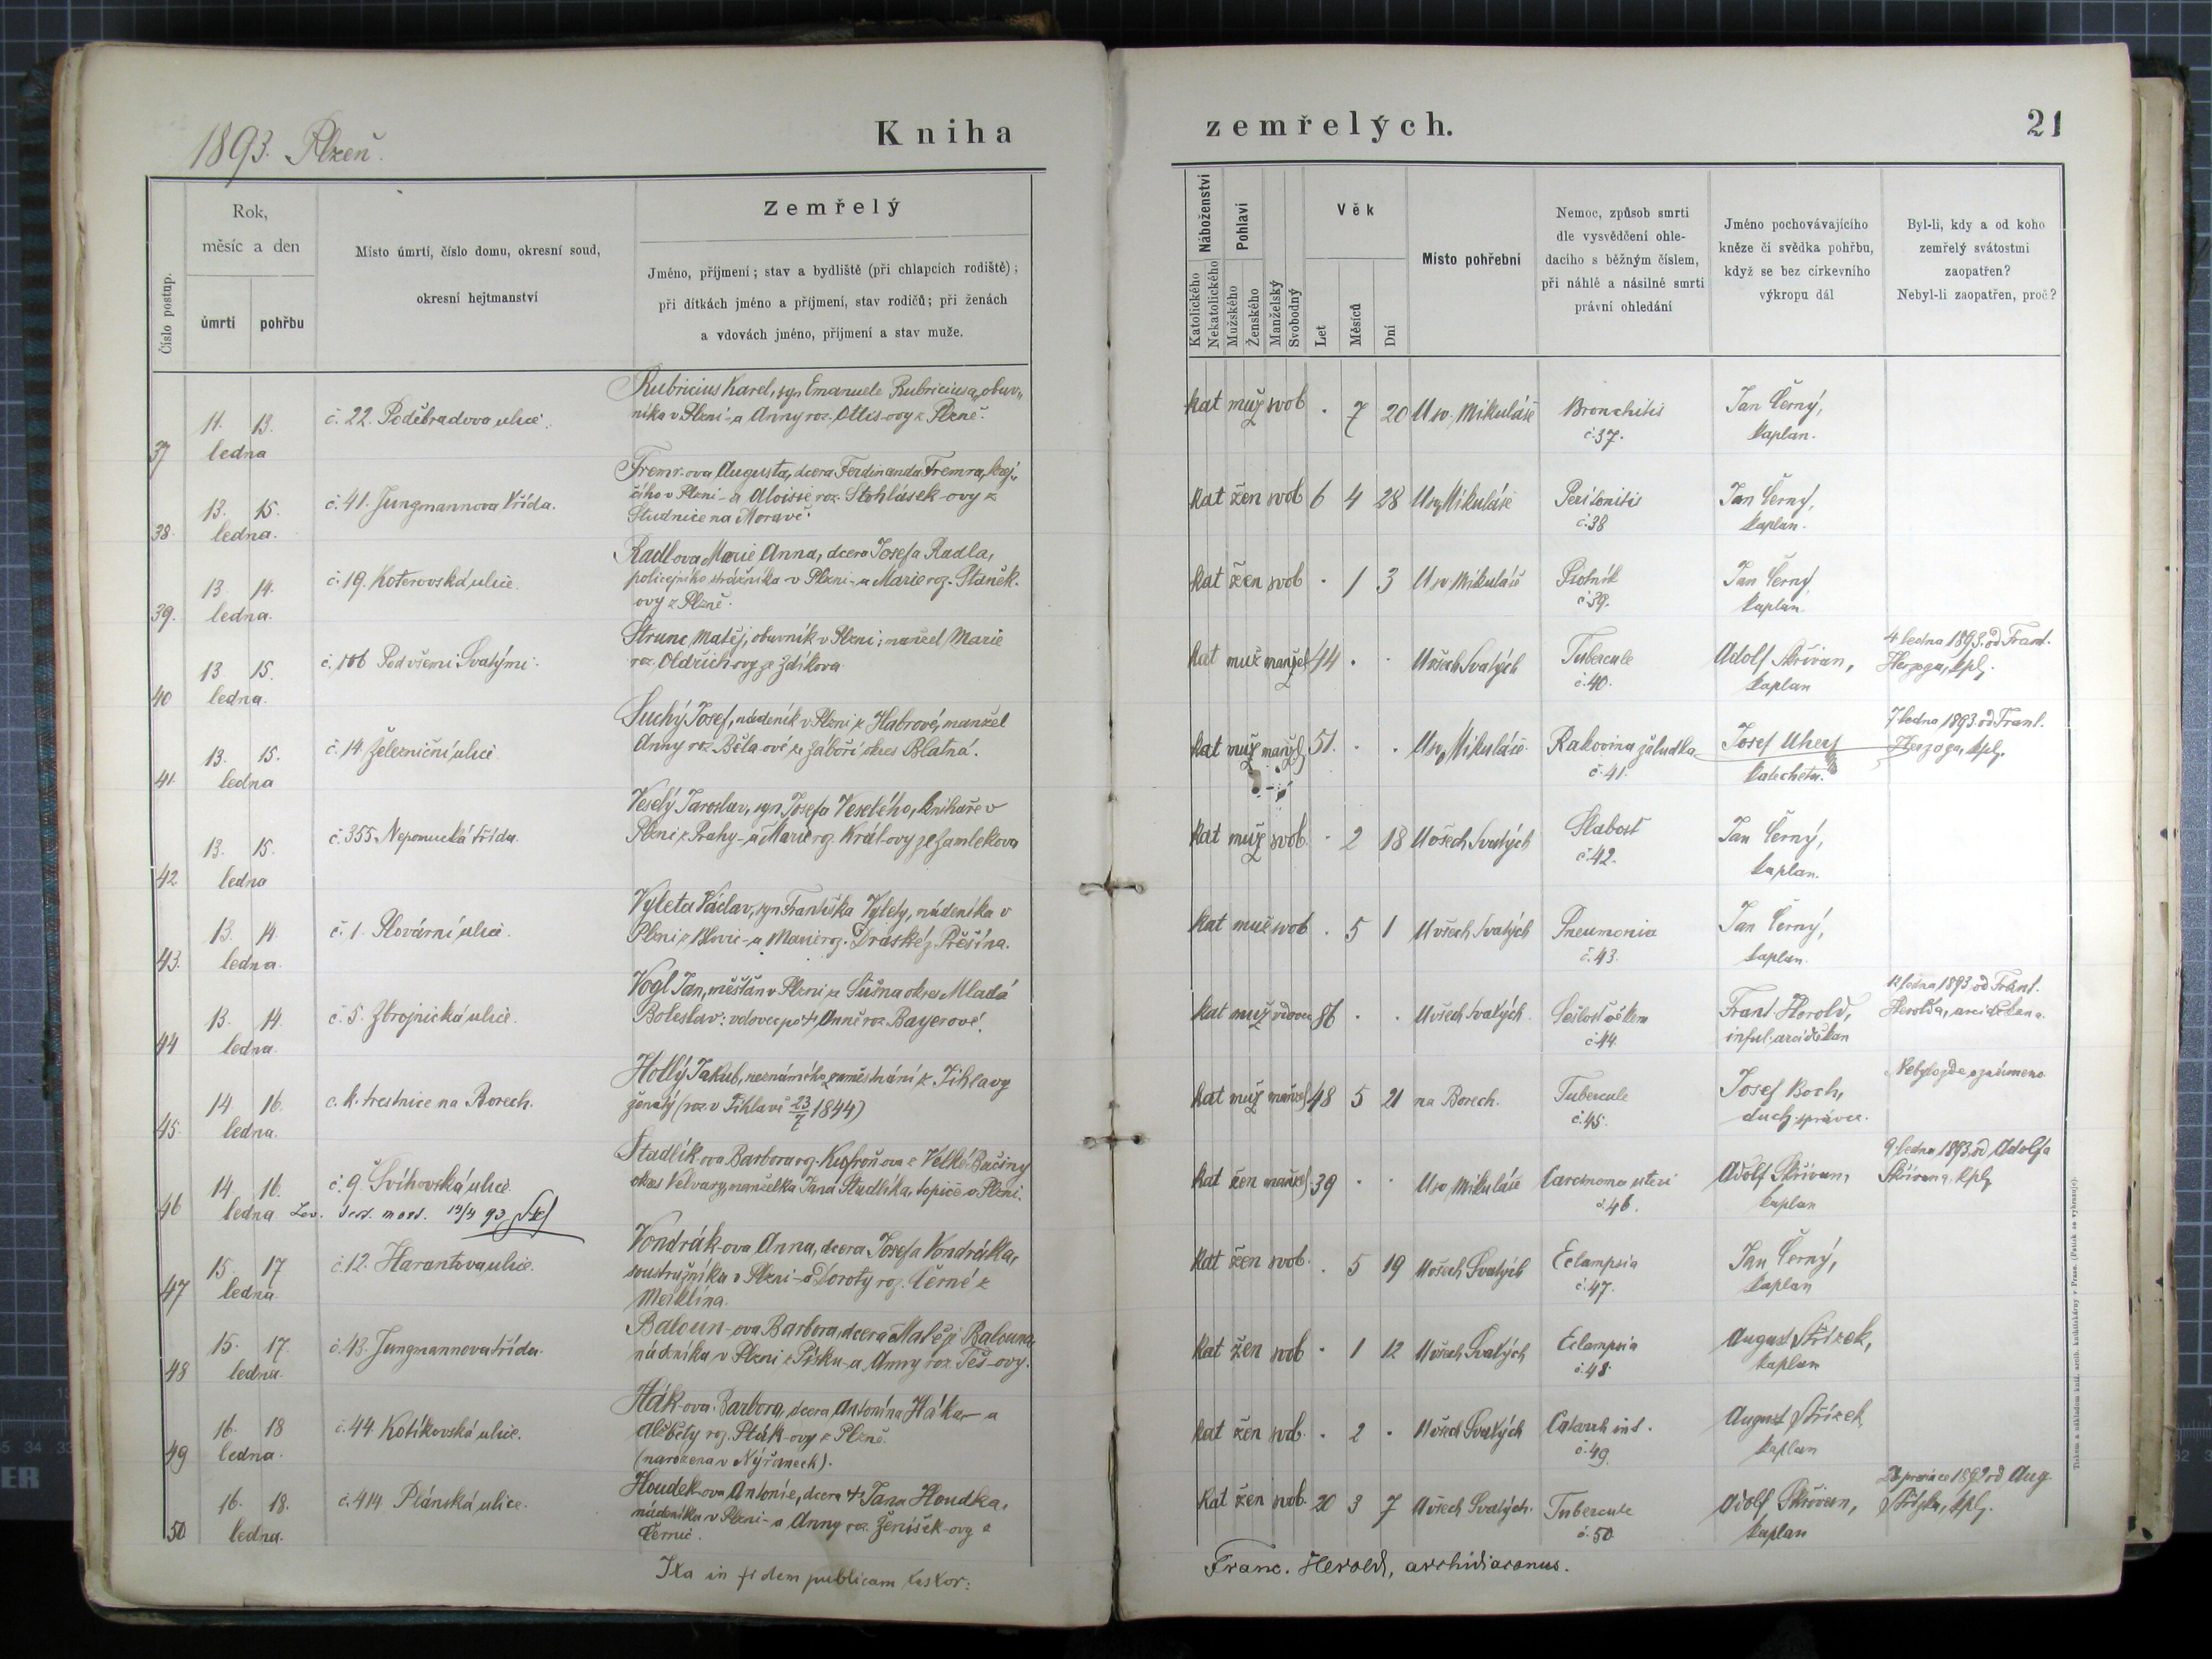 1893. Plzeň.
Kniha
zemřelých.
21
Číslo postup.
Rok,
měsíc a den
úmrtí
pohřbu
Místo úmrtí, číslo domu, okresní soud,
okresní hejtmanství
Zemřelý
Jméno, příjmení; stav a bydliště (při chlapcích rodiště);
při dítkách jméno a příjmení, stav rodičů; při ženách
a vdovách jméno, příjmení a stav muže.
Náboženství
Katolického
Nekatolického
Pohlaví
Mužského
Ženského
Manželský
Svobodný
Věk
Let
Měsíců
Dní
Místo pohřební
Nemoc, způsob smrti
dle vysvědčení ohle-
dacího s běžným číslem,
při náhlé a násilné smrti
právní ohledání
Jméno pochovávajícího
kněze či svědka pohřbu,
když se bez církevního
výkropu dál
Byl-li, kdy a od koho
zemřelý svátostmi
zaopatřen?
Nebyl-li zaopatřen, proč?
37 11. 13. ledna
č. 22. Poděbradova ulice.
Rubricius Karel, syn Emanuele Rubriciusa, obuv-
níka v Plzni - a Anny roz. Ottis-ovy z Plzně.
kat muž svob . 7 20 U sv. Mikuláše
Bronchitis
č. 37.
Jan Černý,
kaplan.
38. 13. 15. ledna.
č. 41. Jungmannova třída.
Fremr-ova Augusta, dcera Ferdinanda Fremra, krej-
čího v Plzni - a Aloisie roz. Stohlásek-ovy z
Studnice na Moravě.
kat žen svob 6 4 28 U sv. Mikuláše
Peritonitis
č. 38
Jan Černý,
kaplan.
39. 13 14. ledna.
č. 19. Koterovská ulice.
Radlova Marie Anna, dcera Josefa Radla,
policejního strážníka v Plzni - a Marie roz. Staněk-
ovy z Plzně.
kat žen svob . 1 3 U sv Mikuláše
Psotník
č. 39.
Jan Černý
kaplan.
40 13 15. ledna.
č. 106 Pod všemi Svatými.
Strunc Matěj, obuvník v Plzni; manžel Marie
roz. Oldřich-ovy ze Zdíkova
kat muž manžel 44 . . U všech Svatých
Tubercule
č. 40.
Adolf Skřivan,
kaplan
4 ledna 1893. od Frant.
Herzoga, kpl.
41. 13. 15. ledna
č. 14. Železniční ulice
Suchý Josef, nádeník v Plzni z Habrové, manžel
Anny roz. Běla-ové ze Záboří okres Blatná.
kat muž manžel 51. . . U sv. Mikuláše.
Rakovina žaludka
č. 41.
Josef Uherf
katecheta.
7 ledna 1893. od Frant.
Herzoga, kpl.
42 13. 15. ledna
č. 355. Nepomucká třída.
Veselý Jaroslav, syn Josefa Veselého, knihaře v
Plzni z Prahy - a Marie roz. Král-ovy ze Samlekova
kat muž svob. . 2 18 U všech Svatých
Slabosť
č. 42.
Jan Černý,
kaplan.
43. 13. 14. ledna.
č. 1. Plovární ulice.
Vyleta Václav, syn Františka Vylety, nádeníka v
Plzni z Blovic - a Marie roz. Draské z Přešína.
kat muž svob . 5 1 U všech Svatých
Pneumonia
č. 43.
Jan Černý,
kaplan.
44 13. 14. ledna.
č. 5. Zbrojnická ulice.
Vogl Jan, měšťan v Plzni ze Sušna okres Mladá
Boleslav: vdovec po † Anně roz. Bayerové.
kat muž vdovec 86 . . U všech Svatých.
Sešlosť věkem
č. 44.
Frant. Herold,
inful. arciděkan
12 ledna 1893 od Frant.
Herolda, arciděkana.
45. 14 16. ledna.
c. k. trestnice na Borech.
Hollý Jakub, neznámého zaměstnání z Jihlavy
ženatý (roz. v Jihlavě 23/7 1844)
kat muž manžel 48 5 21 na Borech.
Tubercule
č. 45.
Josef Boch,
duch. správce.
46 14 16. ledna
č. 9. Švihovská ulice.
Lev. test. mort. 14/4 93
Stadlík ova Barbora roz. Kufroňova z Velké Bučiny
okres Velvary, manželka Jana Stadlíka, topiče v Plzni.
kat žen manžel. 39 . . U sv Mikuláše
Carcinoma uteri
č. 46.
Adolf Skřivan,
kaplan
9. ledna 1893. od Adolfa
Skřivana, kpl.
47 15. 17 ledna
č. 12. Harantova ulice.
Vondrák-ova Anna, dcera Josefa Vondráka,
soustružníka v Plzni - a Doroty roz. Černé z
Merklína.
kat žen svob. . 5 19 U všech Svatých
Eclampsia
č. 47.
Jan Černý,
kaplan
48 15. 17. ledna.
č. 43. Jungmannova třída.
Baloun-ova Barbora, dcera Matěje Balouna,
nádeníka v Plzni z Písku - a Anny roz. Teš-ovy.
kat žen svob . 1 12 U všech Svatých
Eclampsia
č. 48.
August Střízek,
kaplan
49 16. 18 ledna.
č. 44. Kotíkovská ulice.
Hák-ova Barbora, dcera Antonína Háka - a
Alžběty roz. Pták-ovy z Plzně.
(narozena v Nýřanech).
kat žen svob. . 2 . U všech Svatých
Catarrh int.
č. 49.
August Střízek,
kaplan
50 16. 18. ledna.
č. 414. Plánská ulice.
Houdek-ova Antonie, dcera † Jana Houdka,
nádeníka v Plzni - a Anny roz. Ženíšek-ovy z
Černic.
kat žen svob. 20 3 7 U všech Svatých.
Tubercule
č. 50.
Adolf Skřivan,
kaplan
23 prosince 1892 od Aug.
Střízka, kpl.
Ita in fidem publicam testor:
Franc. Herold, archidiaconus.